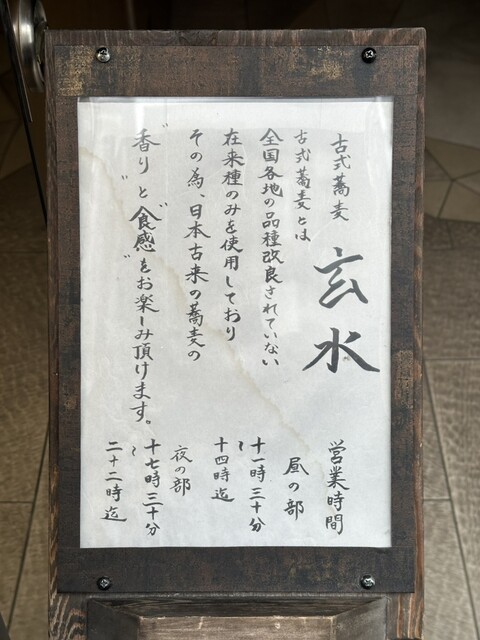 古式蕎麦
玄水
古式蕎麦とは
全国各地の品種改良されていない
在来種のみを使用しており
その為、日本古来の蕎麦の
"香り"と"食感"をお楽しみ頂けます。
営業時間
昼の部
十一時三十分
〜
十四時迄
夜の部
十七時三十分
〜
二十二時迄